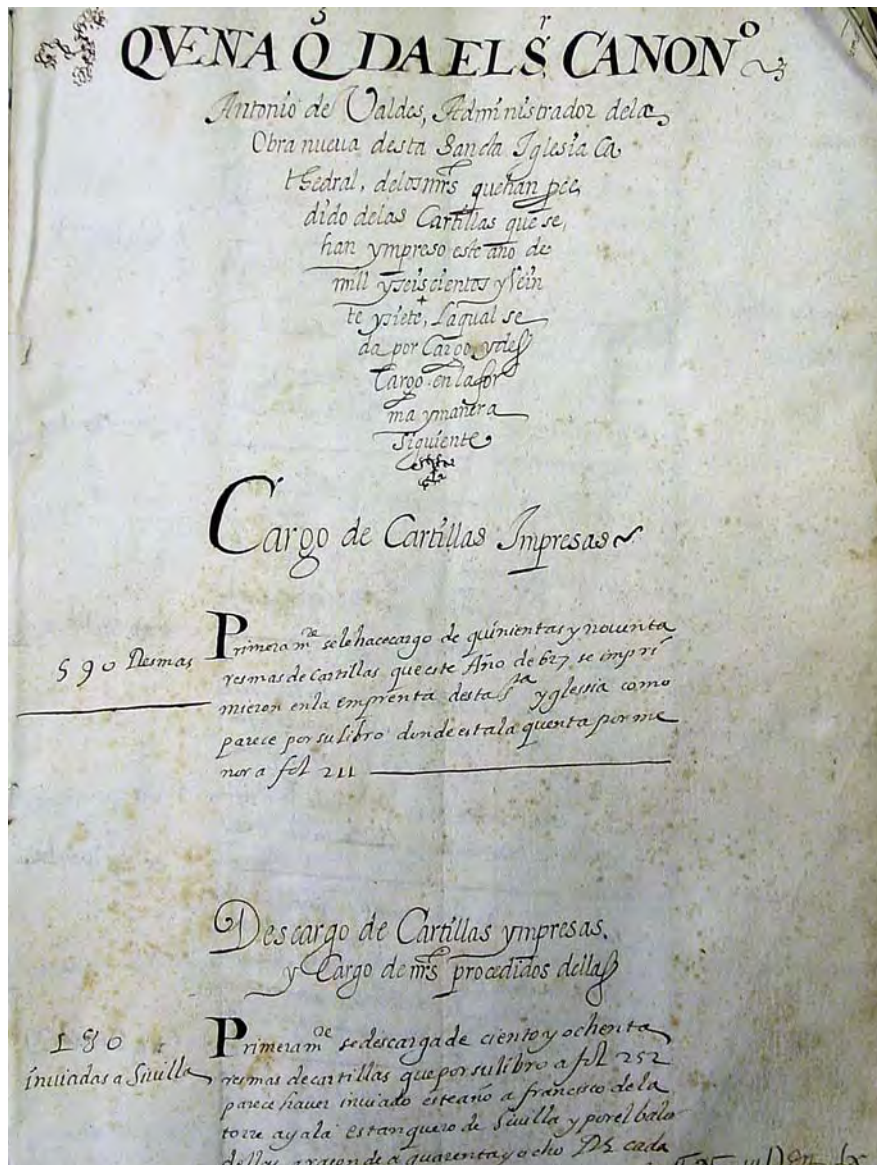 QVENA Q̃ DA EL Sr CANONo
Antonio de Valdes, Administrador dela
Obra nueua desta Sancta Iglesia Ca
thedral, delos mrs que han proce
dido delas Cartillas que se
han ympreso este año de
mill y seis cientos y Vein
te y siete, Laqual se
da por Cargo, y des
Cargo en la for
ma y manera
siguiente
Cargo de Cartillas Impresas
590 Resmas
Primeramte se le hace cargo de quinientas y nouenta
resmas de Cartillas que este Año de 627 se impri
mieron en la emprenta desta sta yglessia como
parece por su libro donde esta la quenta por me
nor a fol 211
Descargo de Cartillas ympresas,
y Cargo de mrs procedidos dellas
180
inuiadas a Siuilla
Primeramte se descarga de ciento y ochenta
resmas de cartillas que por su libro a fol 252
parece hauer inuiado este año a francisco de la
torre ayala estanquero de Siuilla y por el balor
dellas a raçon de a quarenta y ocho Rs cada